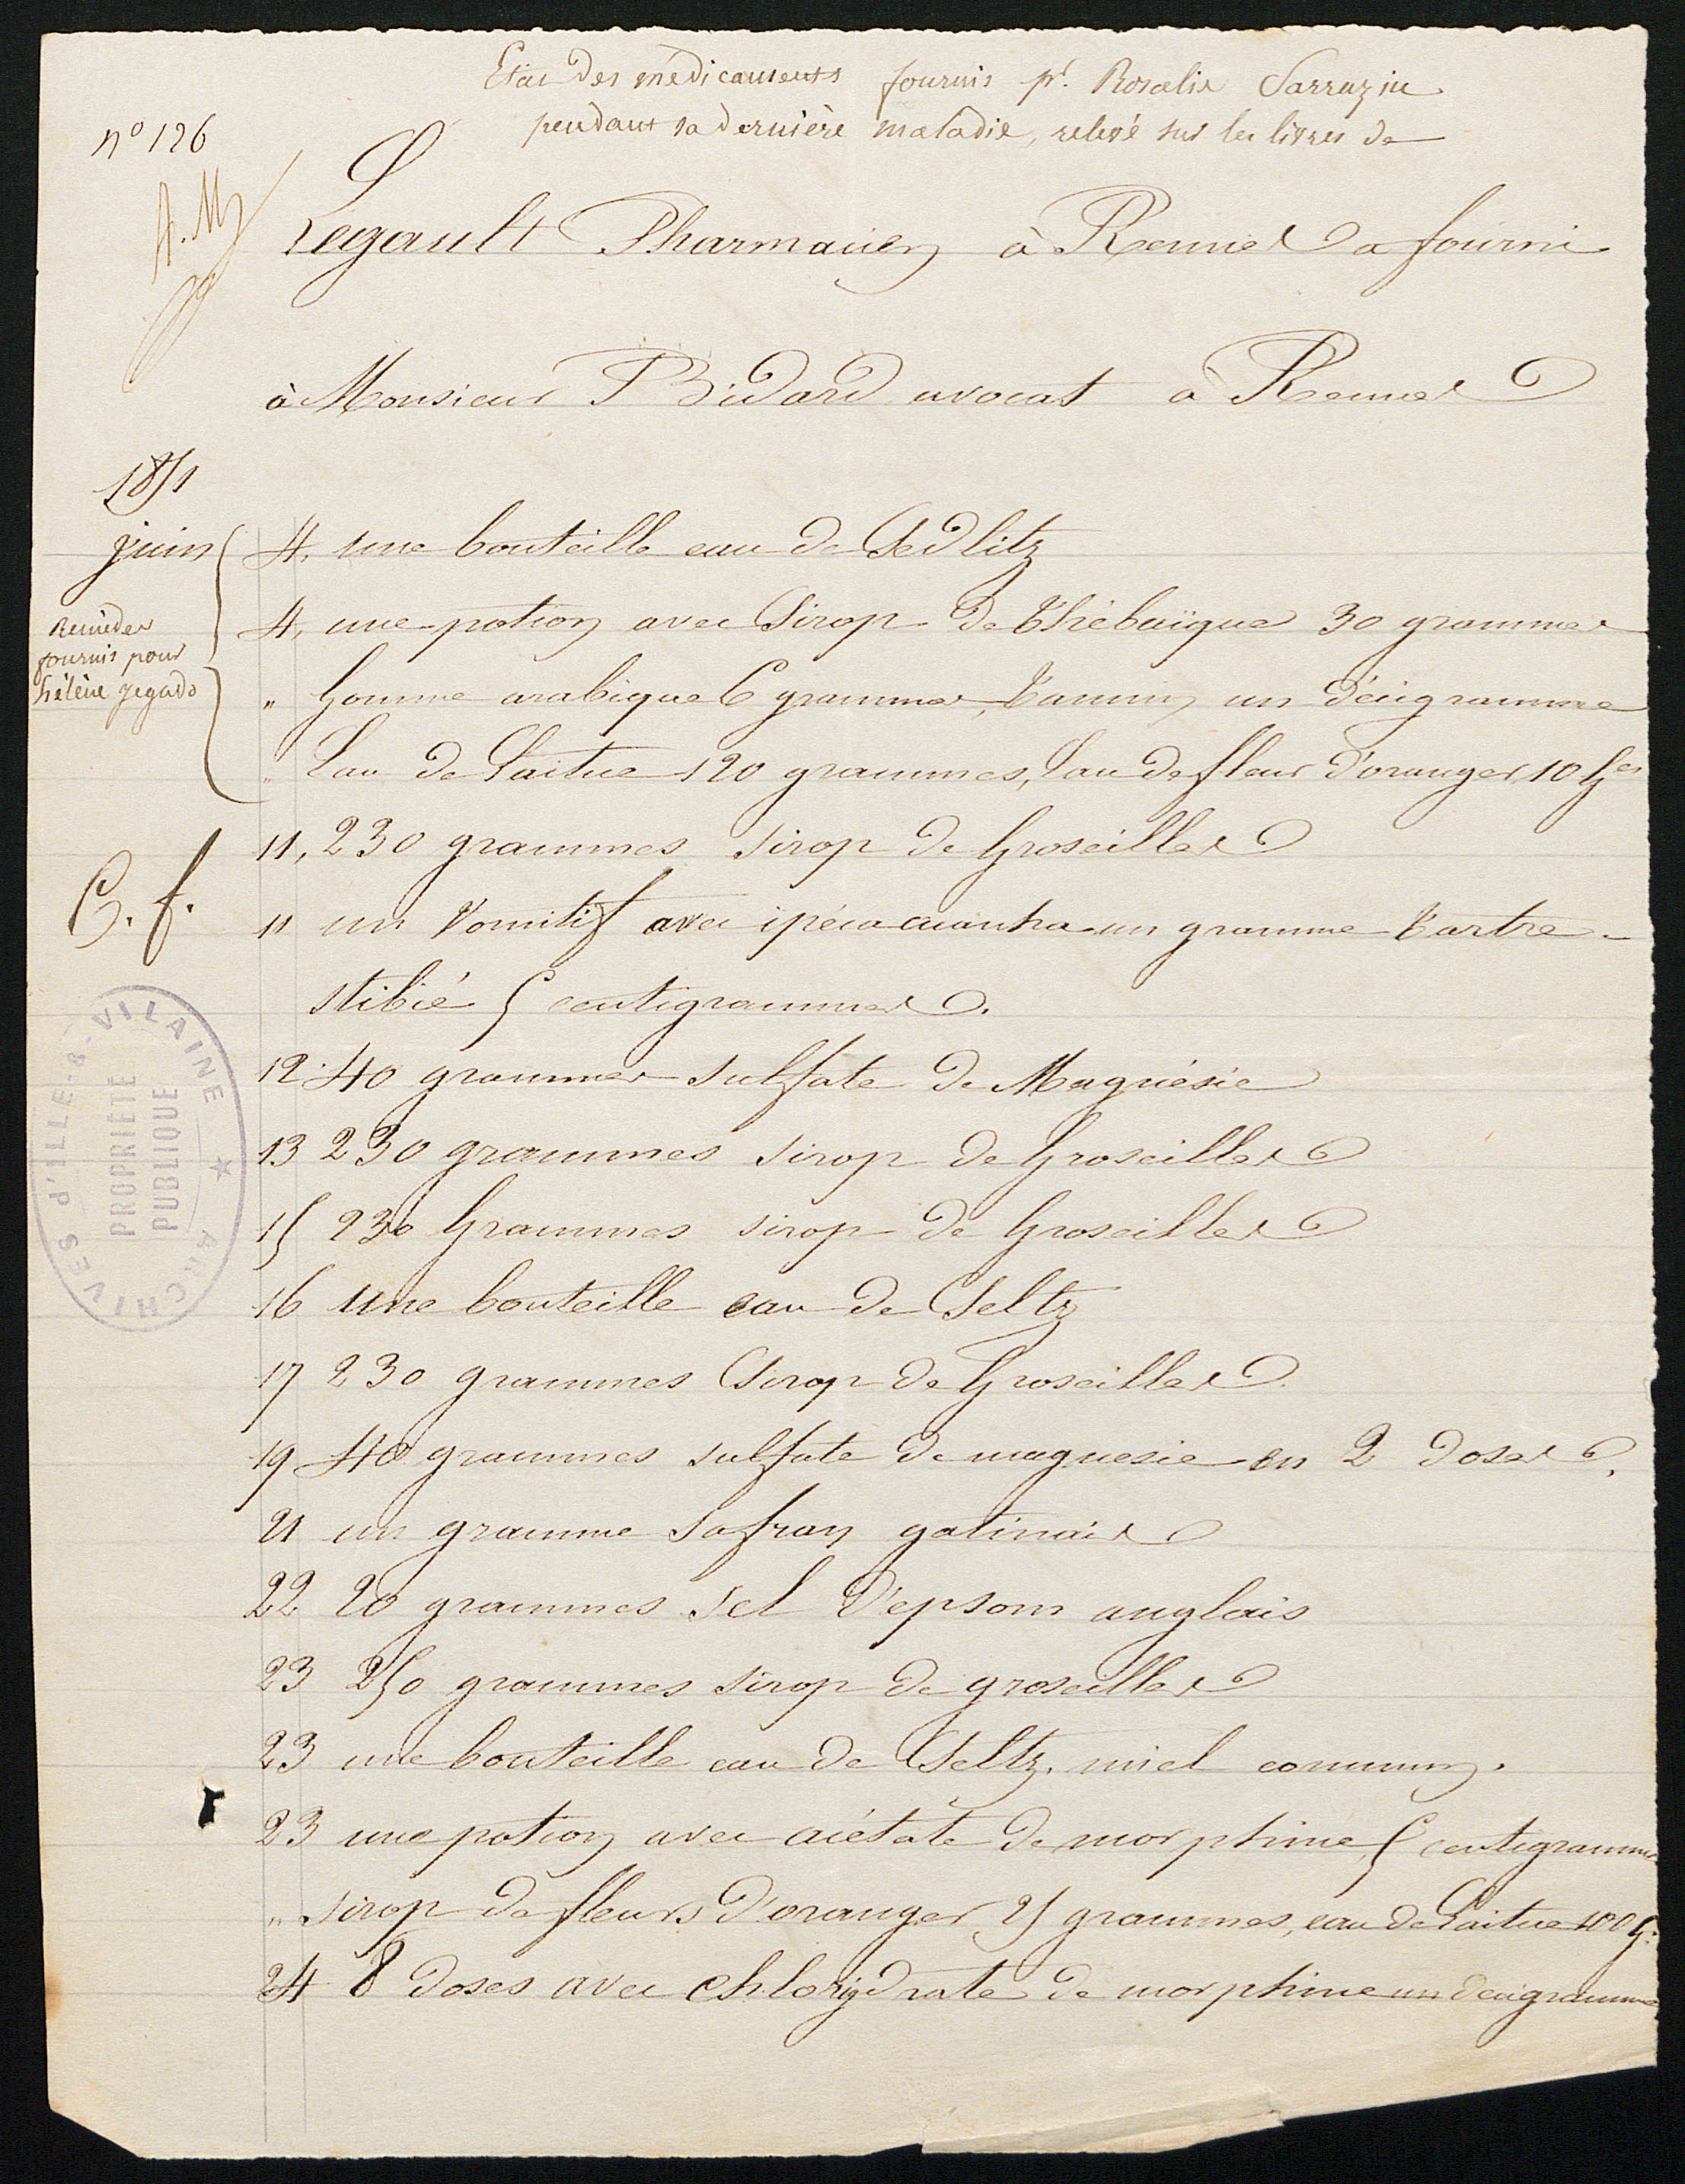 Etat des médicaments fournis pr. Rosalie Sarrazin
pendant sa dernière maladie, relevé sur les livres de
n° 126
Legault Pharmacien à Rennes a fourni
à Monsieur Bidard avocat à Rennes
1851
juin
4, une bouteille eau de Sedlitz
Remèdes
fournis pour
hélène jegado
4, une potion avec Sirop de Thébaïque 30 grammes
" Gomme arabique 6 grammes, Tannin un décigramme
" Eau de Laitue 120 grammes, Eau de fleur d'oranger 10 Ges
11, 230 grammes sirop de Groseilles
11 un Vomitif avec ipécacuanha un gramme Tartre
stibié 5 centigrammes.
12 40 grammes sulfate de Magnésie
13 230 grammes sirop de Groseilles
15 230 Grammes sirop de Groseilles
16 une bouteille eau de Seltz
17 230 grammes Sirop de Groseilles
19 40 grammes sulfate de magnesie en 2 doses.
21 un gramme Safran gatinais
22 20 grammes sel d'epsom anglais
23 250 grammes sirop de groseilles
23 une bouteille eau de Seltz. miel commun.
23 une potion avec acétate de morphine 5 centigrammes
" sirop de fleurs d'oranger 25 grammes, eau de Laitue 100 G.
24 8 doses avec chlorydrate de morphine un décigramme
ARCHIVES d'ILLE-&-VILAINE
PROPRIÉTÉ
PUBLIQUE